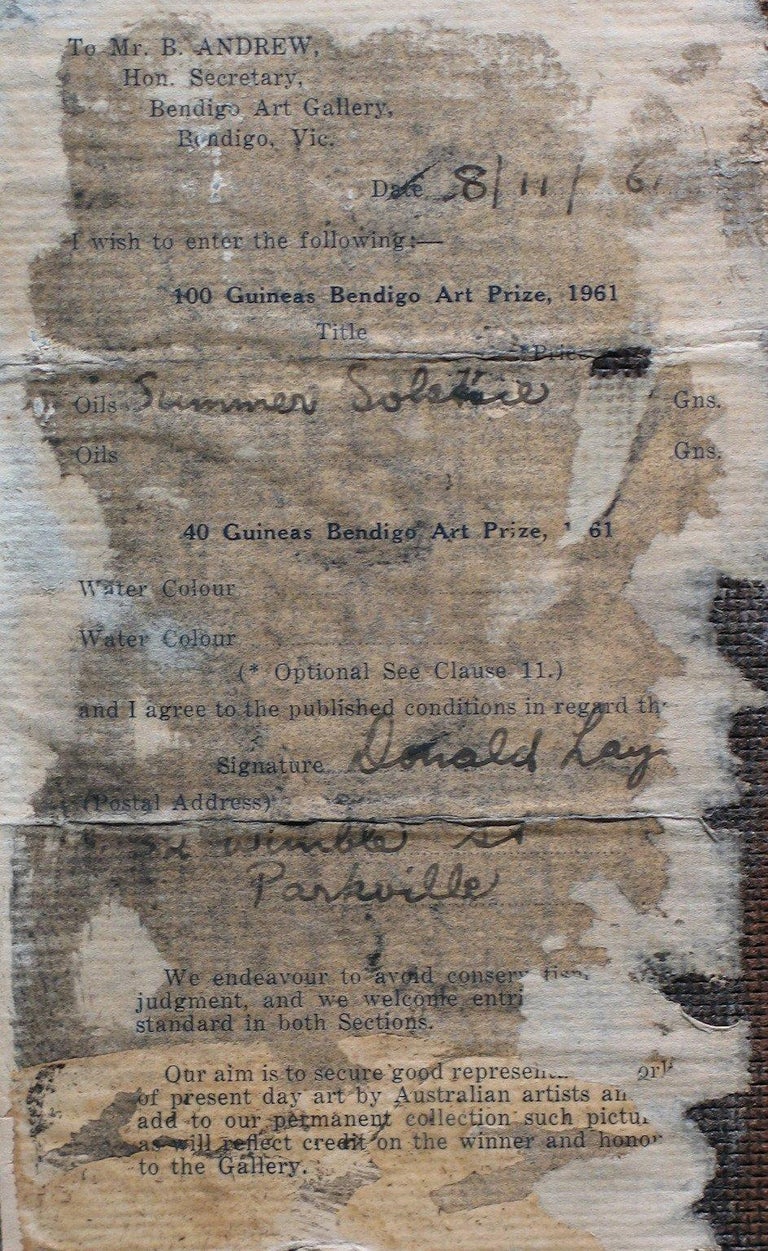 To Mr. B. ANDREW,
Hon. Secretary,
Bendigo Art Gallery,
Bendigo, Vic.
Date 8/11/61
I wish to enter the following:—
100 Guineas Bendigo Art Prize, 1961
Title
*Price
Oils Summer Solstice Gns.
Oils Gns.
40 Guineas Bendigo Art Prize, 1961
Water Colour
Water Colour
(* Optional See Clause 11.)
and I agree to the published conditions in regard th
Signature Donald Lay
(Postal Address)
Wimble St
Parkville
We endeavour to avoid
judgment, and we welcome entri
standard in both Sections.
Our aim is to secure good represent
of present day art by Australian artists an
add to our permanent collection such pictu
as will reflect credit on the winner and honor
to the Gallery.